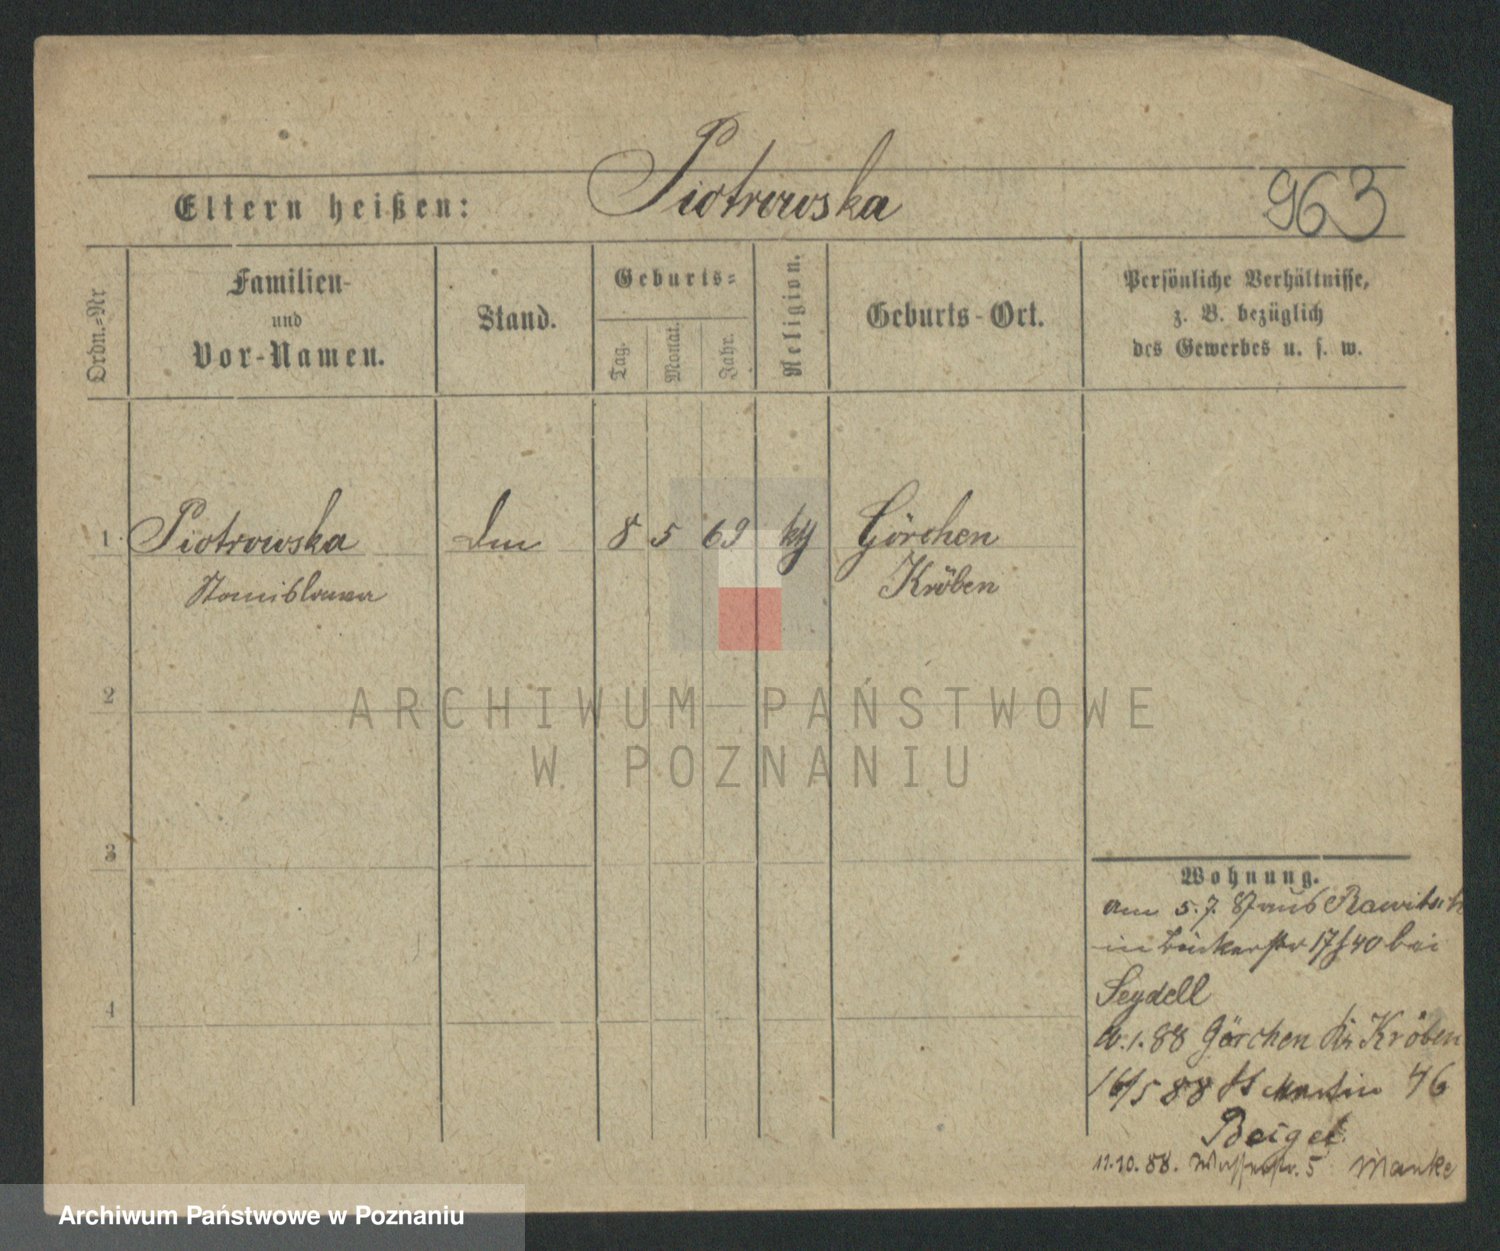 Piotrowska
Eltern heißen:
963
Ordn.-Nr
Familien-
und
Vor-Namen.
Stand.
Geburts-
Tag.
Monat.
Jahr.
Religion.
Geburts-Ort.
Persönliche Verhältnisse,
z. B. bezüglich
des Gewerbes u. s. w.
1. Piotrowska 8 5 69 Görchen
Stanislawa Kröben
2
3
4
ARCHIWUM PAŃSTWOWE
W POZNANIU
Wohnung.
am 5.7.87 aus Rawitsch
in 17/40 bei
Seydell
1.88 Görchen Kr Kröben
16/5 88 St Martin 46
Beiget
11.10.88. Wasserstr. 5 Manke
Archiwum Państwowe w Poznaniu